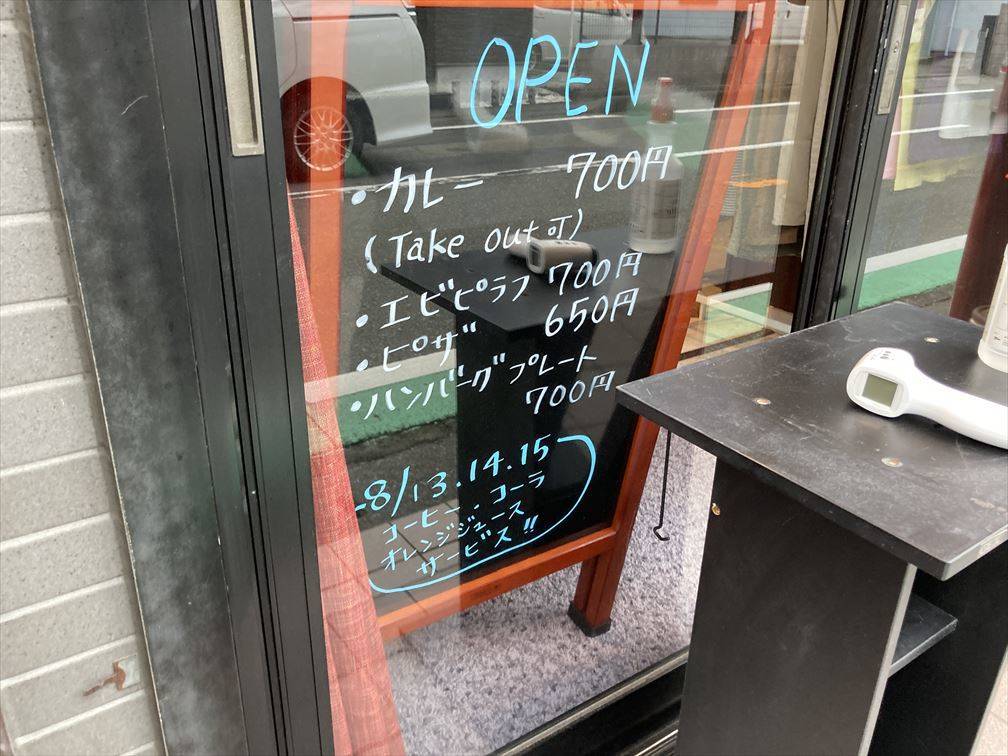 OPEN
・カレー 700円
(Take out可)
・エビピラフ 700円
・ピザ 650円
・ハンバーグプレート
700円
8/13.14.15
コーヒー.コーラ
オレンジジュース
サービス!!